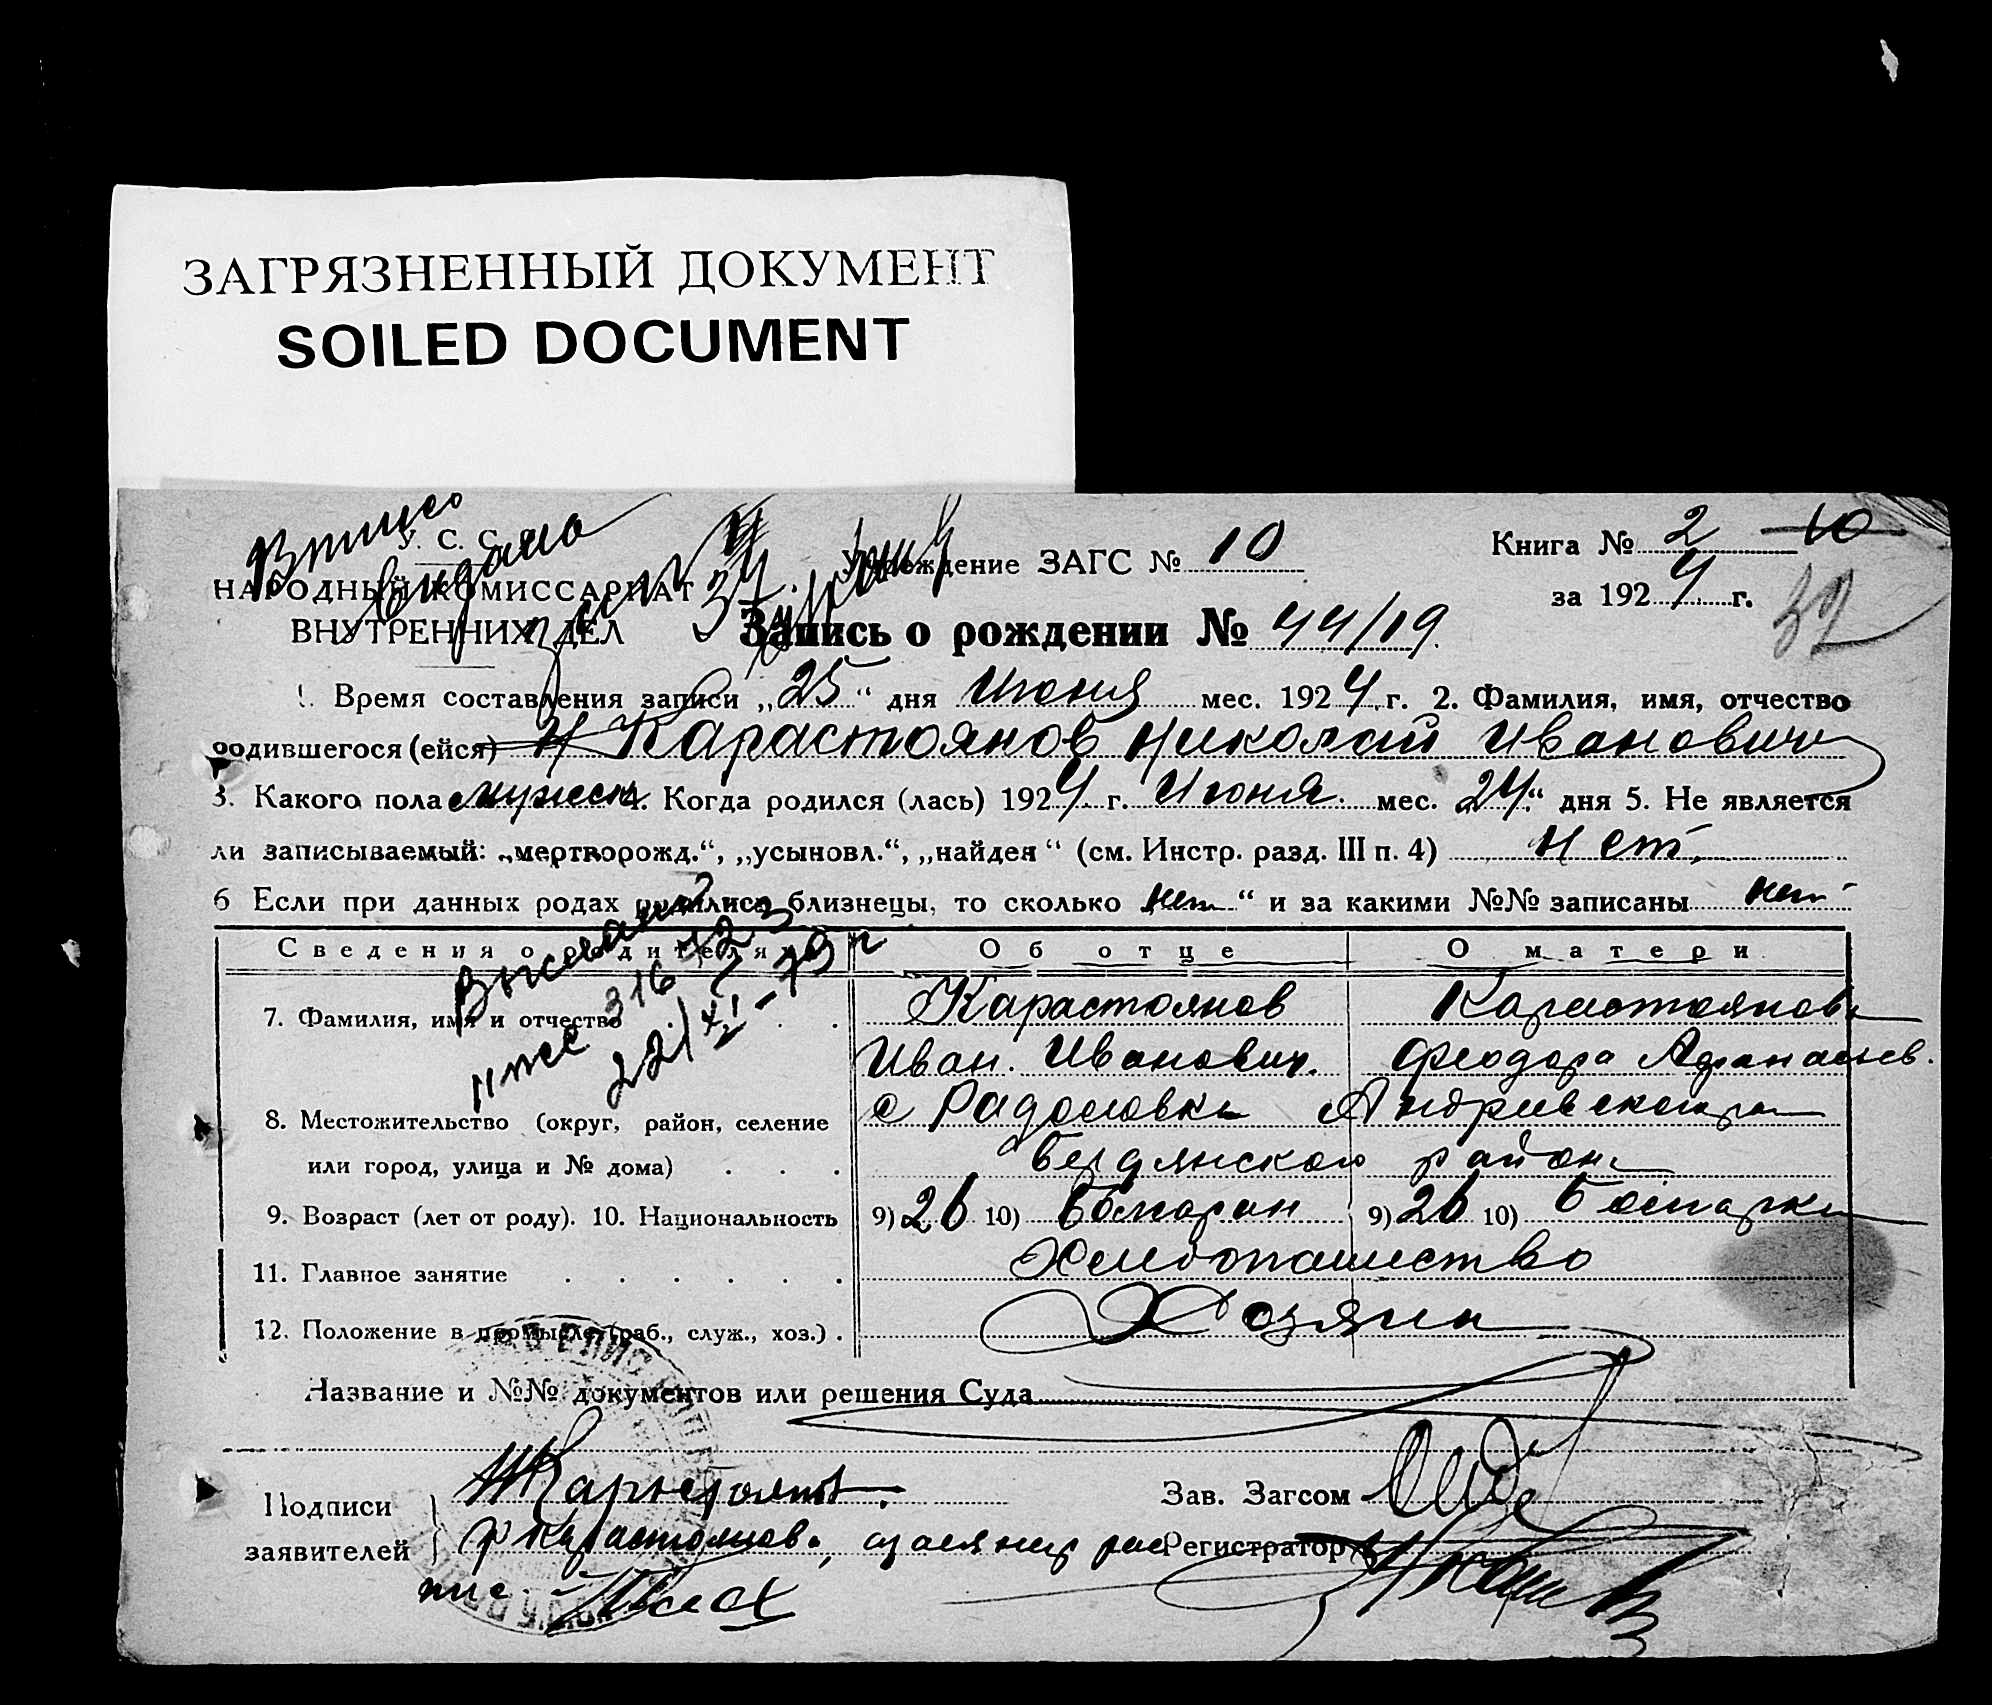 ЗАГРЯЗНЕННЫЙ ДОКУМЕНТ
SOILED DOCUMENT
У. С. С. Р.
НАРОДНЫЙ КОМИССАРИАТ
ВНУТРЕННИХ ДЕЛ
Учреждение ЗАГС № 10
Книга № 2 10
за 1924 г.
Запись о рождении № 44/19
1. Время составления записи „25“ дня Июня мес. 1924 г. 2. Фамилия, имя, отчество
родившегося (ейся) Карастоянов Николай Иванович
3. Какого пола мужеск 4. Когда родился (лась) 1924 г. Июня мес. 24“ дня 5. Не является
ли записываемый: „мертворожд.“, „усыновл.“, „найден“ (см. Инстр. разд. III п. 4) нет
6 Если при данных родах родились близнецы, то сколько нет“ и за какими №№ записаны нет
Сведения о родителях Об отце О матери
7. Фамилия, имя и отчество Карастоянов Карастоянова
Иван. Иванович. Феодора Афанасьев.
8. Местожительство (округ, район, селение с Радоловка
или город, улица и № дома) Бердянского района
9. Возраст (лет от роду). 10. Национальность 9) 26 10) Болгарин 9) 26 10) Болгарка
11. Главное занятие Хлебопашество
12. Положение в промысле (раб., служ., хоз.) Хозяин
Название и №№ документов или решения Суда
Подписи
заявителей
Зав. Загсом
Регистратор